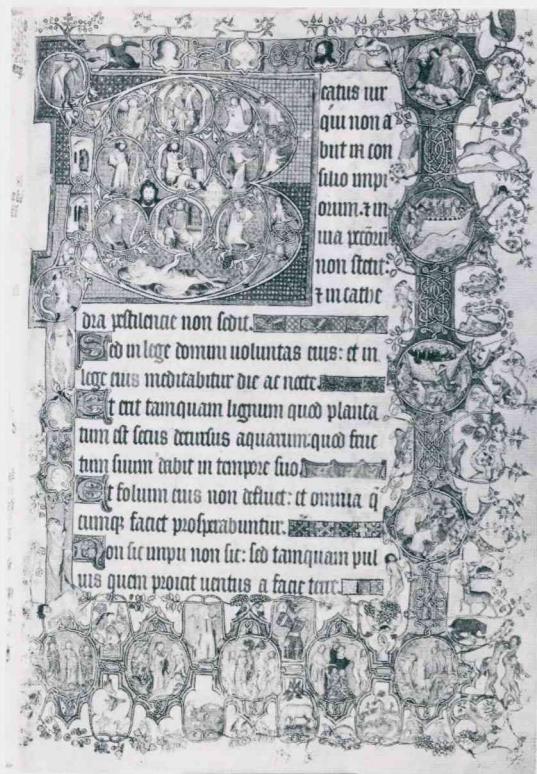 B
catus uir
qui non a
but in con
silio impi
orum. & in
uia pccoru
non stetit:
& in cathe
dra pestilencie non sedit.
Sed in lege domini uoluntas eius: et in
lege eius meditabitur die ac nocte.
Et erit tamquam lignum quod planta
tum est secus decursus aquarum: quod fruc
tum suum dabit in tempore suo
Et folium eius non defluet: et omnia q
cumq; faciet prosperabuntur.
Non sic impii non sic: sed tamquam pul
uis quem proicit uentus a facie terre.